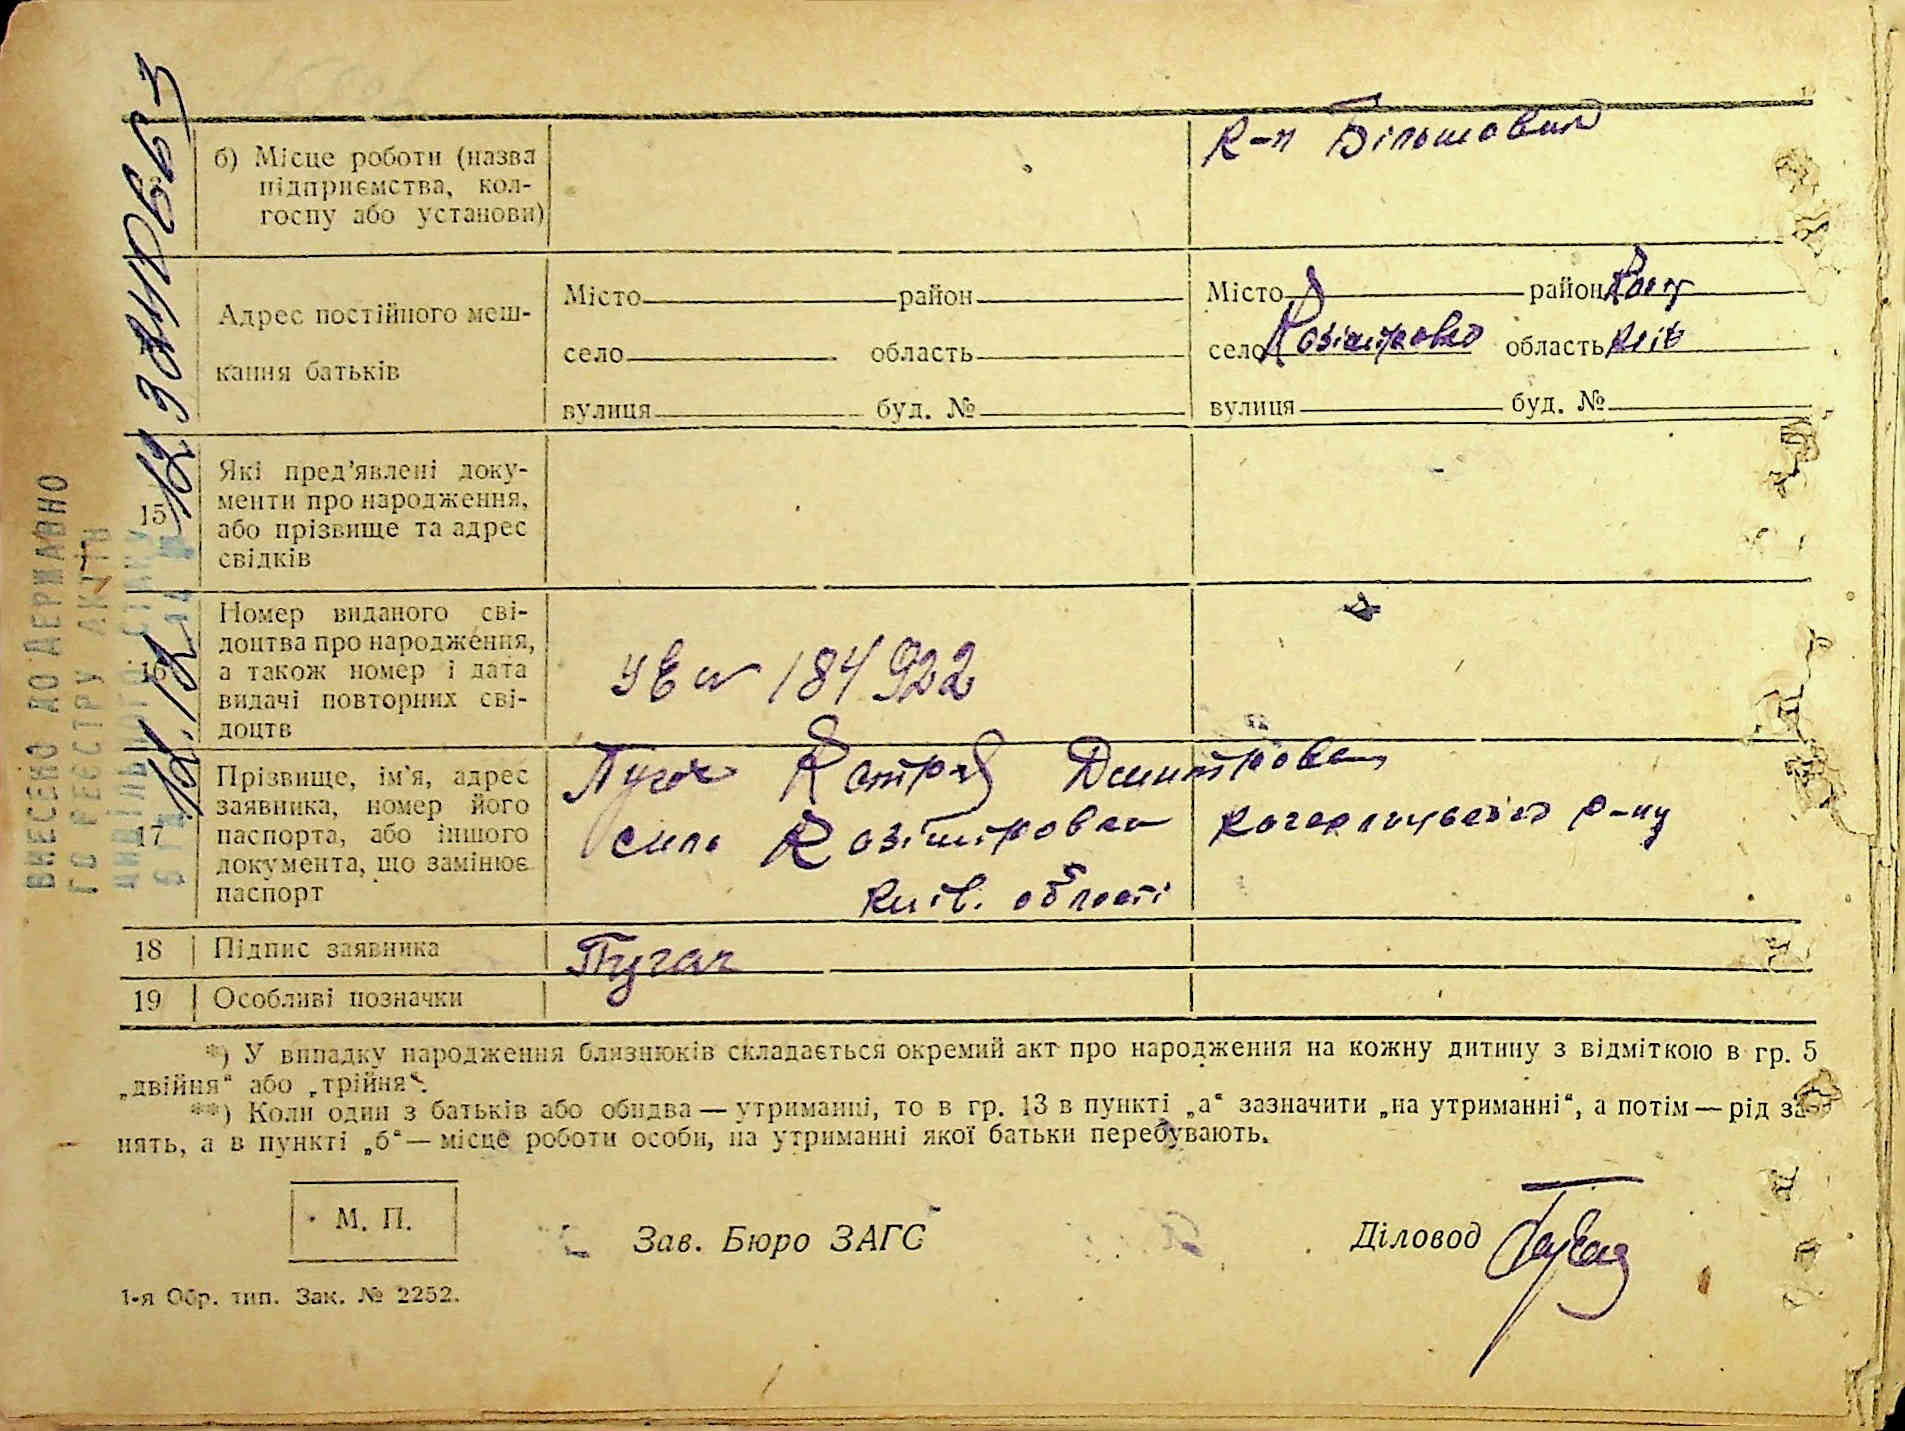 б) Місце роботи (назва
підприємства, кол-
госпу або установи)
к-п Більшовик
Адрес постійного меш-
кання батьків
Місто район
село область
вулиця буд. №
Місто район
село область Київ
вулиця буд. №
15
Які пред'явлені доку-
менти про народження,
або прізвище та адрес
свідків
16
Номер виданого сві-
доцтва про народження,
а також номер і дата
видачі повторних сві-
доцтв
184922
17
Прізвище, ім'я, адрес
заявника, номер його
паспорта, або іншого
документа, що замінює
паспорт
Пугач Дмитровна
село р-ну
Київ. області
18
Підпис заявника
Пугач
19
Особливі позначки
*) У випадку народження близнюків складається окремий акт про народження на кожну дитину з відміткою в гр. 5
„двійня“ або „трійня“.
**) Коли один з батьків або обидва — утриманці, то в гр. 13 в пункті „а“ зазначити „на утриманні“, а потім — рід за-
нять, а в пункті „б“ — місце роботи особи, на утриманні якої батьки перебувають.
М. П.
Зав. Бюро ЗАГС
Діловод
1-я Обр. тип. Зак. № 2252.
ВНЕСЕНО ДО ДЕРЖАВНО
ГО РЕЄСТРУ АКТІВ